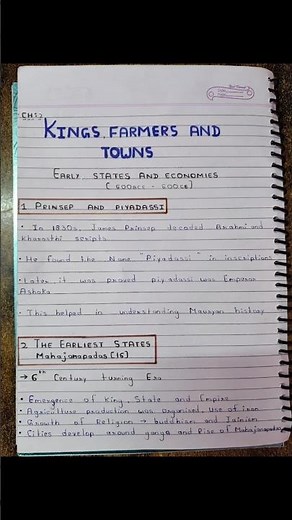 CH:2
KINGS, FARMERS AND
TOWNS
EARLY STATES AND ECONOMIES
[600BCE - 600CE]
1 PRINSEP AND PIYADASSI
• In 1830s, James Prinsep decoded Brahmi and
Kharosthi scripts
• He found the Name "Piyadassi" in inscriptions
• Later it was proved piyadassi was Emperor
Ashoka
• This helped in understanding Mauryan history
2 THE EARLIEST STATES
Mahajanapadas [16]
→ 6th Century turning Era
• Emergence of King, State and Empire
• Agriculture production was organised, use of iron
• Growth of Religion → buddhism and Jainism
• Cities develop around ganga and Rise of Mahajanapadas